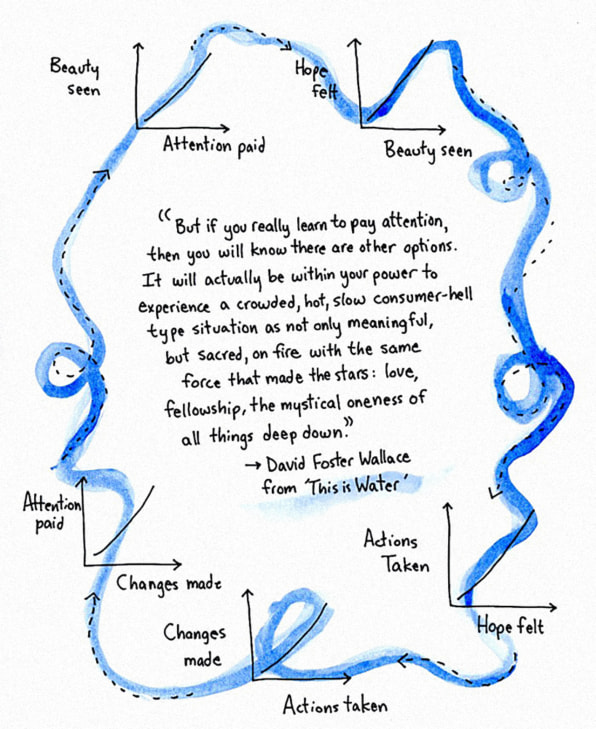 Beauty
seen
Attention paid
Hope
felt
Beauty seen
“But if you really learn to pay attention,
then you will know there are other options.
It will actually be within your power to
experience a crowded, hot, slow consumer-hell
type situation as not only meaningful,
but sacred, on fire with the same
force that made the stars: love,
fellowship, the mystical oneness of
all things deep down.”
→ David Foster Wallace
from 'This is Water'
Attention
paid
Changes made
Actions
Taken
Hope felt
Changes
made
Actions taken